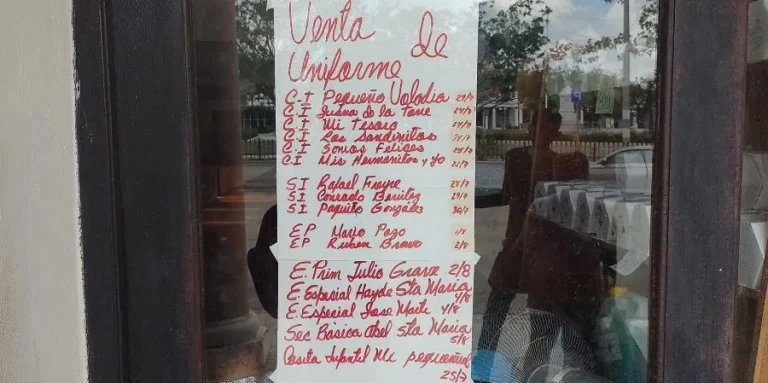 Venta de
Uniforme
C.I Pequeño Volodia 24/7
C.I Juana de la Torre 24/7
C.I Mi Tesoro 24/7
C.I Los Sandinitos
C.I Somos Felices 25/7
C.I Mis Hermanitos y yo 25/7
SI Rafael Freyre
SI Conrado Benitez 29/8
SI Paquito González 30/7
EP Mario Pozo 1/8
EP Ruben Bravo 2/8
E. Prim Julio Grave 2/8
E. Especial Hayde Sta Maria
4/8
E. Especial Jose Marti 4/8
Sec Básica Abel Sta Maria
5/8
Casita Infantil Mi pequeñin
25/7